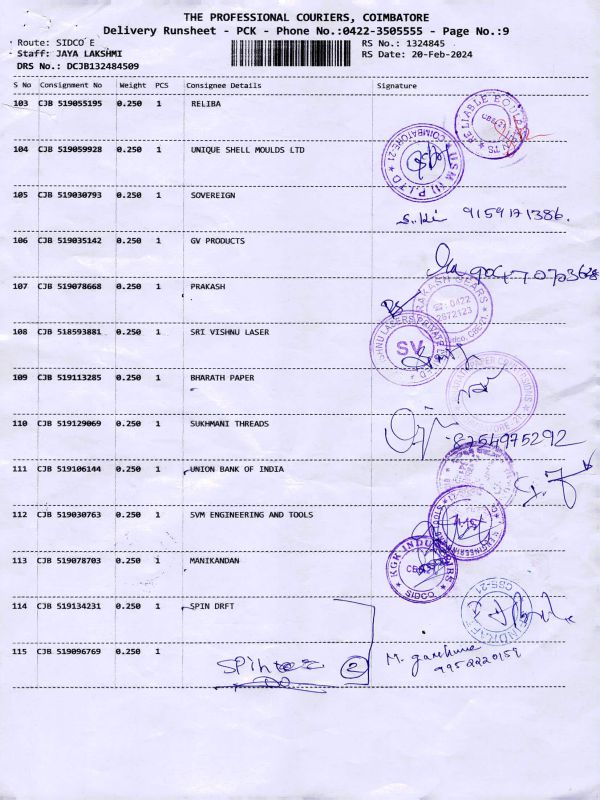 THE PROFESSIONAL COURIERS, COIMBATORE
Delivery Runsheet - PCK - Phone No.:0422-3505555 - Page No.:9
Route: SIDCO E
RS No.: 1324845
Staff: JAYA LAKSHMI
RS Date: 20-Feb-2024
DRS No.: DCJB132484509
S No Consignment No Weight PCS Consignee Details Signature
103 CJB 519055195 0.250 1 RELIBA
104 CJB 519059928 0.250 1 UNIQUE SHELL MOULDS LTD
105 CJB 519030793 0.250 1 SOVEREIGN
9159171386.
106 CJB 519035142 0.250 1 GV PRODUCTS
107 CJB 519078668 0.250 1 PRAKASH
108 CJB 518593881 0.250 1 SRI VISHNU LASER
SV
109 CJB 519113285 0.250 1 BHARATH PAPER
110 CJB 519129069 0.250 1 SUKHMANI THREADS
8754975292
111 CJB 519106144 0.250 1 UNION BANK OF INDIA
112 CJB 519030763 0.250 1 SVM ENGINEERING AND TOOLS
113 CJB 519078703 0.250 1 MANIKANDAN
SIDCO
114 CJB 519134231 0.250 1 SPIN DRFT
115 CJB 519096769 0.250 1
2
9952220159